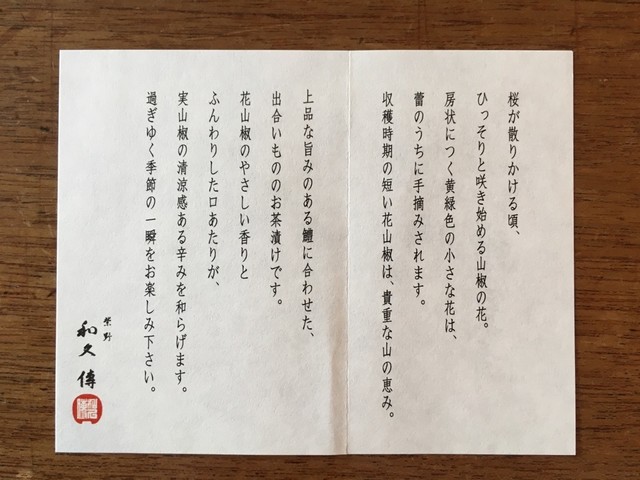 桜が散りかける頃、
ひっそりと咲き始める山椒の花。
房状につく黄緑色の小さな花は、
蕾のうちに手摘みされます。
収穫時期の短い花山椒は、貴重な山の恵み。
上品な旨みのある鱧に合わせた、
出合いもののお茶漬けです。
花山椒のやさしい香りと
ふんわりした口あたりが、
実山椒の清涼感ある辛みを和らげます。
過ぎゆく季節の一瞬をお楽しみ下さい。
紫野
和久傳